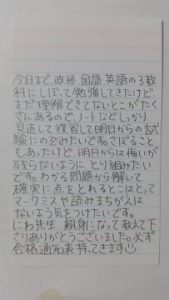 今日まで政経、国語、英語の3教
科にしぼって勉強してきたけど
まだ理解できてないとこがたく
さんあるので、ノートなどしっかり
見直して復習して明日からの試
験にのぞみたいです。さぼること
もあったけど、明日からは悔いが
残らないように とり組みたい
です。わかる問題から解いて
確実に点をとれるとこはとって
マークミスや読みまちがえは
ないよう気をつけたいです。
にわ先生 親身になって教えて下
さりありがとうございました。必ず
合格通知来持ってきます